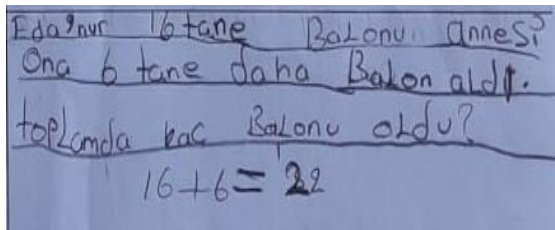 Eda9nur 16 tane Balonu. annesi
Ona 6 tane daha Balon aldı.
topLamda kac BaLonu oLdu?
16+6= 22